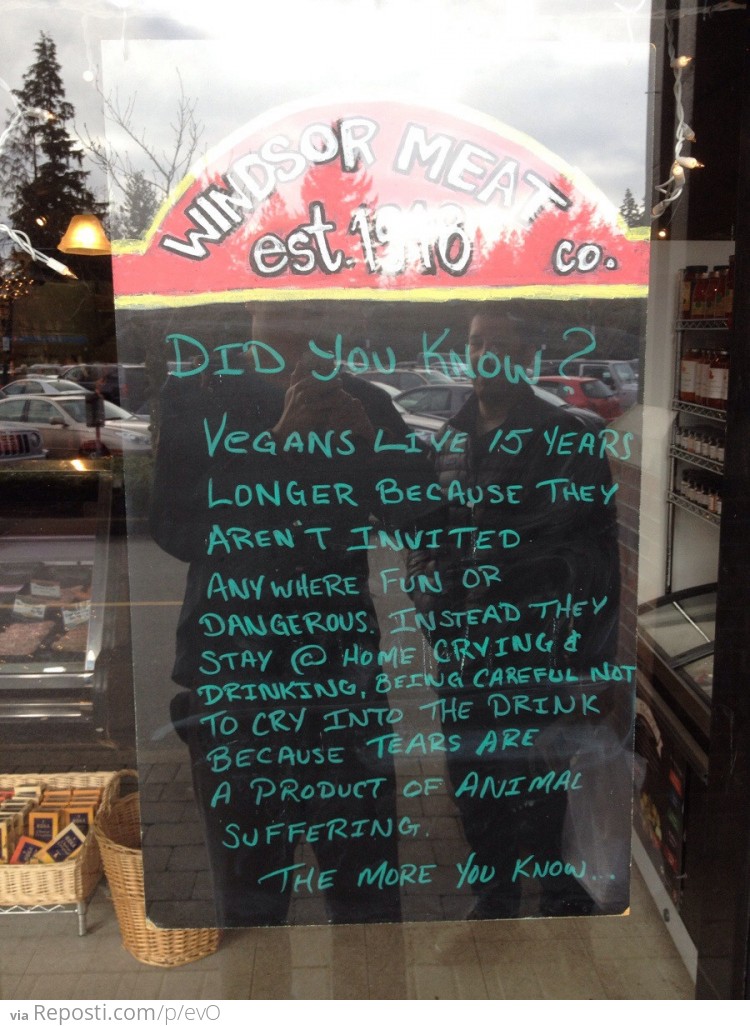 WINDSOR MEAT
est. CO.
DID YOU KNOW?
VEGANS LIVE 15 YEARS
LONGER BECAUSE THEY
AREN'T INVITED
ANYWHERE FUN OR
DANGEROUS. INSTEAD THEY
STAY @ HOME CRYING &
DRINKING, BEING CAREFUL NOT
TO CRY INTO THE DRINK
BECAUSE TEARS ARE
A PRODUCT OF ANIMAL
SUFFERING.
THE MORE YOU KNOW...
via Reposti.com/p/evO